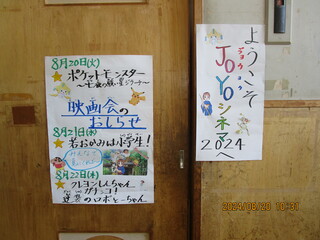 8月20日(火)
ポケットモンスター
映画会の
おしらせ
8月21日(水)
若おかみは小学生!
8月22日(木)
クレヨンしんちゃん
ガチンコ!
逆襲のロボとーちゃん
ようこそ
JOYOシネマへ
2024
2024/08/20